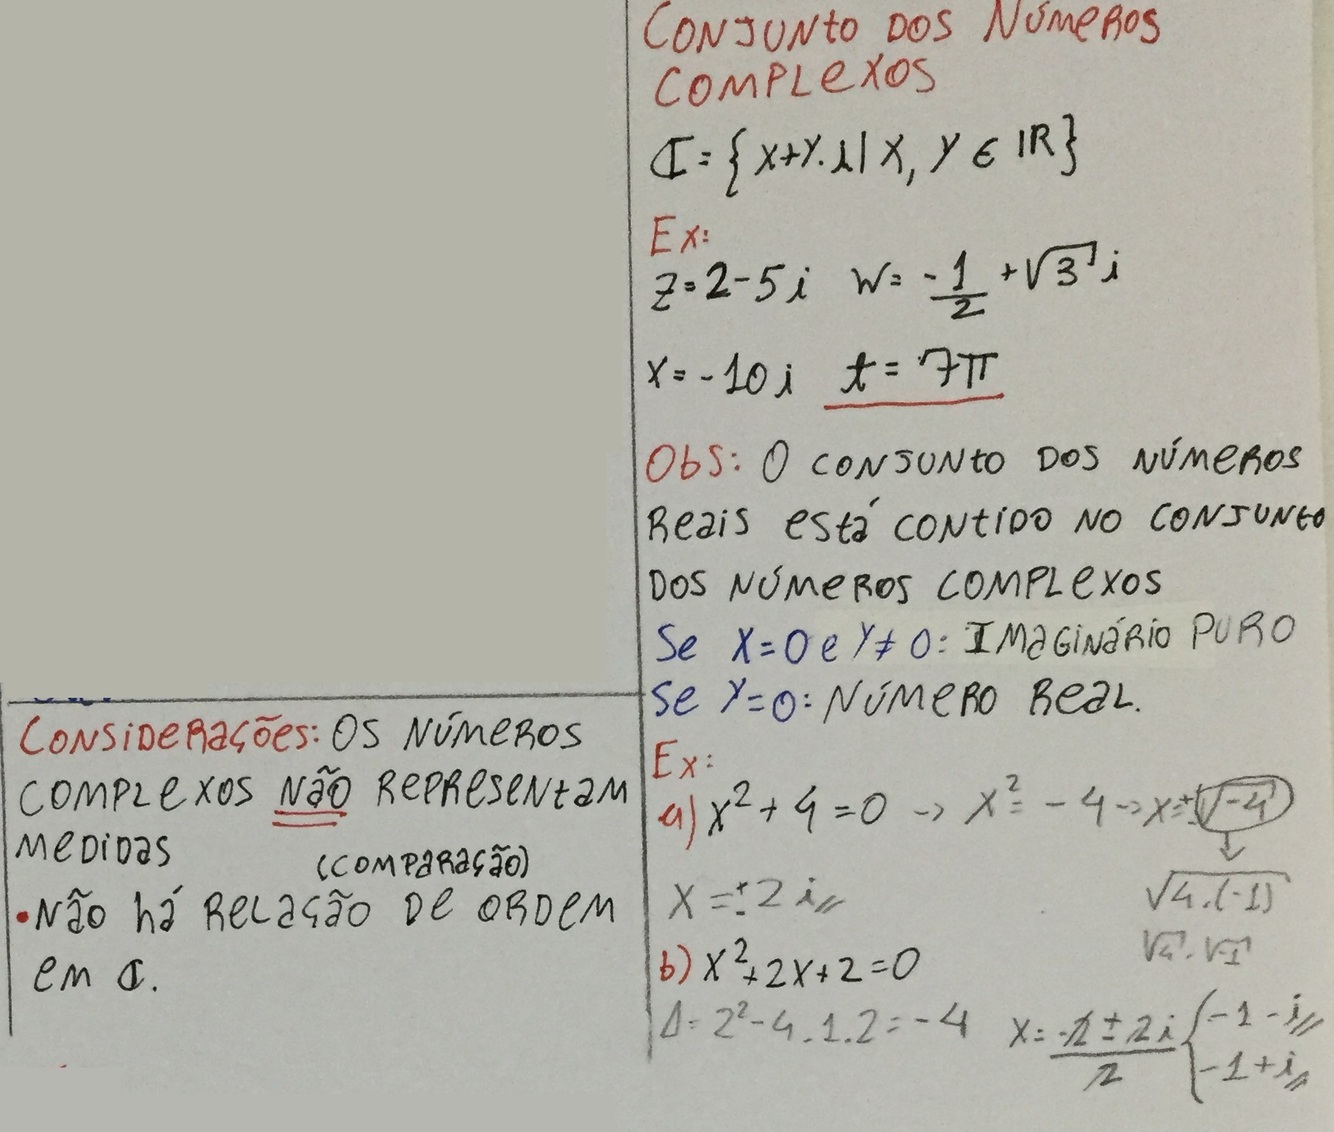 CONJUNTO DOS NÚMEROS
COMPLEXOS
ℂ = {x+y.i | x, y ∈ IR}
Ex:
z=2-5i w= -1/2 +√3 i
x=-10i t=7π
Obs: O CONJUNTO DOS NÚMEROS
Reais está CONTIDO NO CONJUNTO
DOS NÚMEROS COMPLEXOS
Se x=0 e y≠0: IMAGINÁRIO PURO
Se y=0: NÚMERO Real.
Ex:
a) x²+4=0 -> x²=-4 -> x=±√-4
↓
x=±2i √4.(-1)
√4.√-1
b) x²+2x+2=0
Δ=2²-4.1.2=-4 x= -2±2i/2 { -1-i
-1+i
CONSIDERAÇÕES: OS NÚMEROS
COMPLEXOS NÃO REPRESENTAM
MEDIDAS
(COMPARAÇÃO)
•NÃO há RELAÇÃO DE ORDEM
em ℂ.